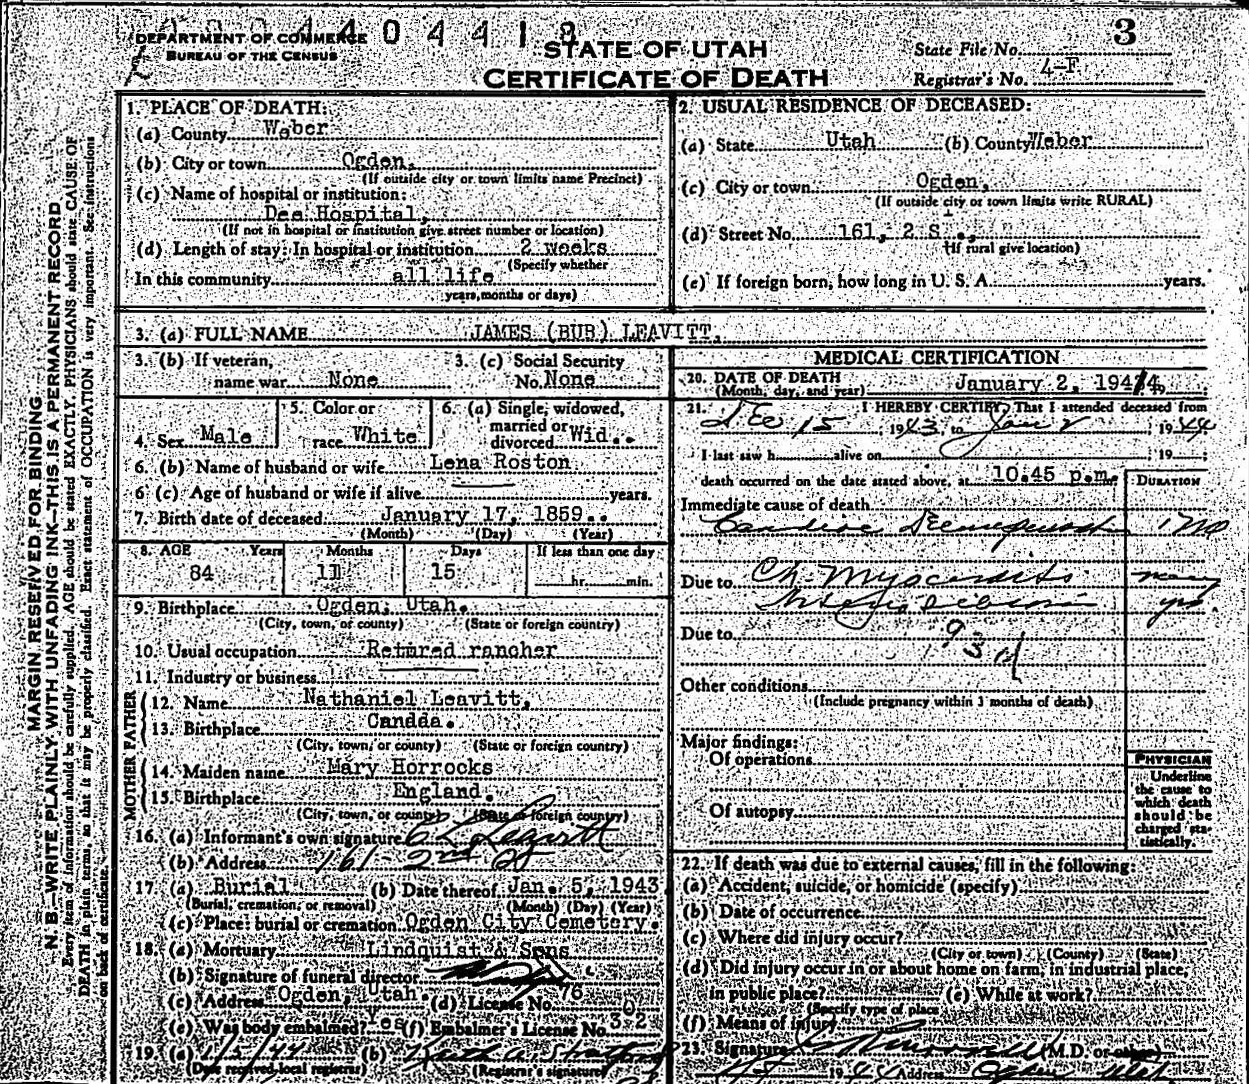 DEPARTMENT OF COMMERCE
BUREAU OF THE CENSUS
404418
STATE OF UTAH
CERTIFICATE OF DEATH
3
State File No.
Registrar's No. 4-F
MARGIN RESERVED FOR BINDING
N. B.—WRITE PLAINLY, WITH UNFADING INK—THIS IS A PERMANENT RECORD
Every item of information should be carefully supplied. AGE should be stated EXACTLY. PHYSICIANS should state CAUSE OF
DEATH in plain terms, so that it may be properly classified. Exact statement of OCCUPATION is very important. See instructions
on back of certificate.
1. PLACE OF DEATH:
(a) County Weber
(b) City or town Ogden,
(If outside city or town limits name Precinct)
(c) Name of hospital or institution:
Dee Hospital,
(If not in hospital or institution give street number or location)
(d) Length of stay: In hospital or institution 2 weeks
(Specify whether
In this community all life
years, months or days)
2. USUAL RESIDENCE OF DECEASED:
(a) State Utah (b) County Weber
(c) City or town Ogden,
(If outside city or town limits write RURAL)
(d) Street No. 161, 2 St.,
(If rural give location)
(e) If foreign born, how long in U. S. A. years.
3. (a) FULL NAME JAMES (BUB) LEAVITT,
3. (b) If veteran,
name war None
3. (c) Social Security
No. None
4. Sex Male
5. Color or
race White
6. (a) Single, widowed,
married or
divorced Wid..
6. (b) Name of husband or wife Lena Roston
6 (c) Age of husband or wife if alive years.
7. Birth date of deceased January 17, 1859..
(Month) (Day) (Year)
8. AGE Years Months Days If less than one day
84 11 15 hr. min.
9. Birthplace Ogden, Utah.
(City, town, or county) (State or foreign country)
10. Usual occupation Retired rancher
11. Industry or business
MOTHER FATHER
12. Name Nathaniel Leavitt,
13. Birthplace Candda.
(City, town, or county) (State or foreign country)
14. Maiden name Mary Horrocks
15. Birthplace England.
(City, town, or county) (State or foreign country)
16. (a) Informant's own signature Leavitt
(b) Address 161 - 2nd St
17. (a) Burial (b) Date thereof Jan. 5, 1943
(Burial, cremation, or removal) (Month) (Day) (Year)
(c) Place: burial or cremation Ogden City Cemetery.
18. (a) Mortuary Lindquist & Sons
(b) Signature of funeral director
(c) Address Ogden, Utah. (d) License No. 76
(e) Was body embalmed? Yes (f) Embalmer's License No.
19. (a) 1/5/44 (b)
(Date received local registrar) (Registrar's signature)
MEDICAL CERTIFICATION
20. DATE OF DEATH January 2, 1944,
(Month, day, and year)
21. I HEREBY CERTIFY, That I attended deceased from
Dec 15 1943, to Jan 2, 1944
I last saw h alive on , 19
death occurred on the date stated above, at 10.45 p.m.
DURATION
Immediate cause of death
Due to Ch. Myocarditis many
yrs.
Due to
Other conditions
(Include pregnancy within 3 months of death)
Major findings:
Of operations
Of autopsy
PHYSICIAN
Underline
the cause to
which death
should be
charged sta-
tistically.
22. If death was due to external causes, fill in the following:
(a) Accident, suicide, or homicide (specify)
(b) Date of occurrence
(c) Where did injury occur?
(City or town) (County) (State)
(d) Did injury occur in or about home on farm, in industrial place,
in public place? (e) While at work?
(Specify type of place
(f) Means of injury
23. Signature (M.D. or other)
1944 Address Ogden Utah